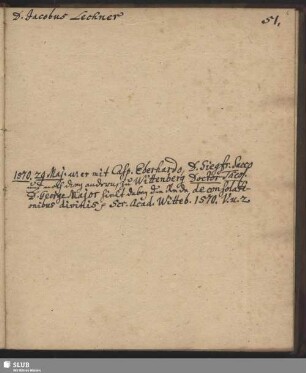 D. Jacobus Lechner
51.
1570. 29 Maj. war er mit Casp. Eberhardo, D. Siegfr. Sacco
zu Wittenberg Doctor
D. George Major hielt dabey die Rede, de consolati-
onibus divinis. Scr. Acad. Witteb. 1570.
SLUB